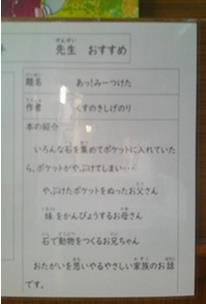 先生　おすすめ
題名　あっ!みーつけた
作者　くすのきしげのり
本の紹介
いろんな石を集めてポケットに入れていた
ら、ポケットがやぶけてしまい・・・
やぶけたポケットをぬったお父さん
妹をかんびょうするお母さん
石で動物をつくるお兄ちゃん
おたがいを思いやるやさしい家族のお話
です。